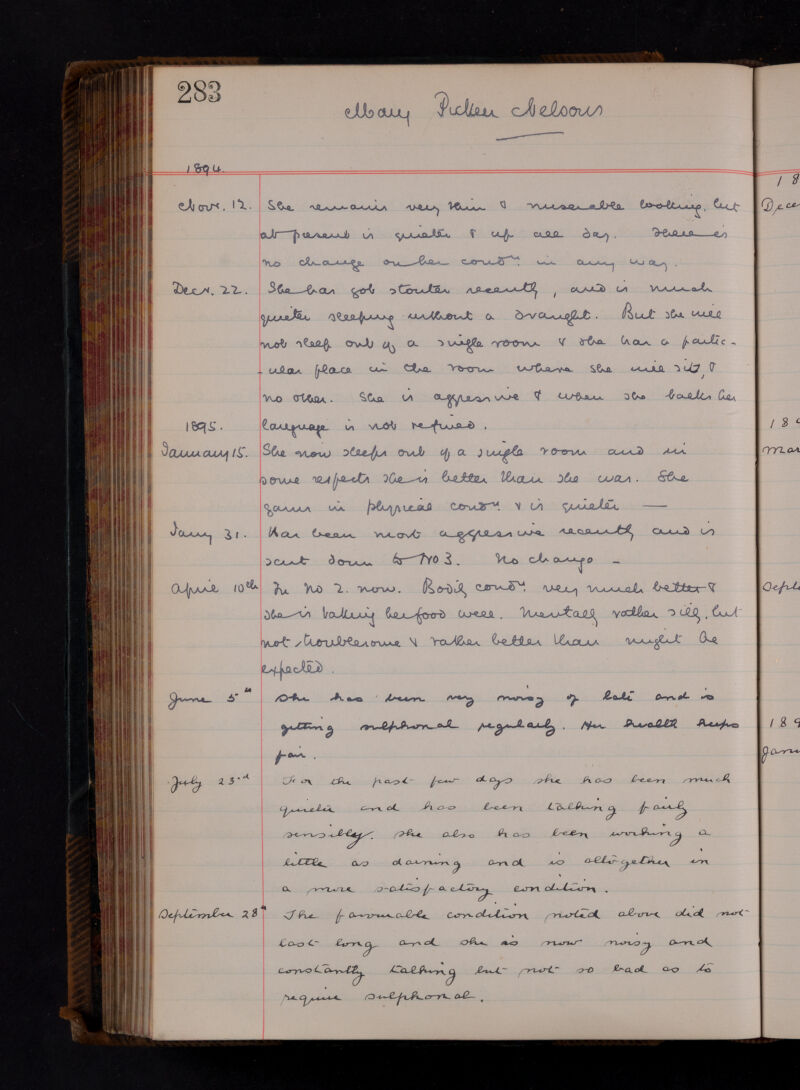 283
Mary Picken
1894.
Novr. 12. She remains very thin & miserable looking, but
at present is quieter & up all day. There is
no change on her condn. in any way.
Decr. 22. She has got stouter recently, and is much
quieter sleeping without a draught. But she will
not sleep out of a single room & she has a partic-
-ular place in the room where she will sit, &
no other. She is aggressive & when she talks her
1895. language is not refined.
January 15. She now sleeps out of a single room and in
some respects she is better than she was. She
gains in physical condn. & is quieter —
Jany 31. Has been most aggressive recently and is
sent down to No 3. No change -
April 10th In No 2. now. Bodily condn. very much better &
she is taking her food well. Mentally rather silly, but
not troublesome & rather better than might be
expected.
June 5th She has been very noisy of late and is
getting sulphonal regularly. Her health keeps
fair.
July 23rd For the past few days she has been much
quieter and has been talking fairly
sensibly. She also has been working a
little as darning and is altogether in
a more satisfactory condition.
September 28th The favourable condition noted above did not
last long and she is now noisy and
constantly talking but not so bad as to
require sulphonal.
18
Dece
189
Mar
Septe
189
Janu